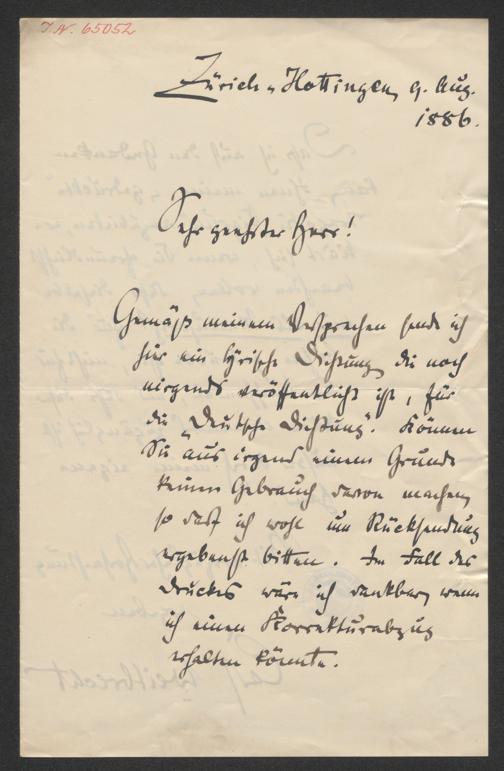 J.N. 65052
Zürich-Hottingen, 9. Aug.
1886.
Sehr geehrter Herr!
Gemäß meinem Versprechen sende ich
hier ein lyrische Dichtung, die noch
nirgends veröffentlicht ist, für
die „Deutsche Dichtung". Können
Sie aus irgend einem Grunde
keinen Gebrauch davon machen,
so darf ich wohl um Rücksendung
ergebenst bitten. Im Fall des
Druckes wäre ich dankbar, wenn
ich einen Korrekturabzug
erhalten könnte.